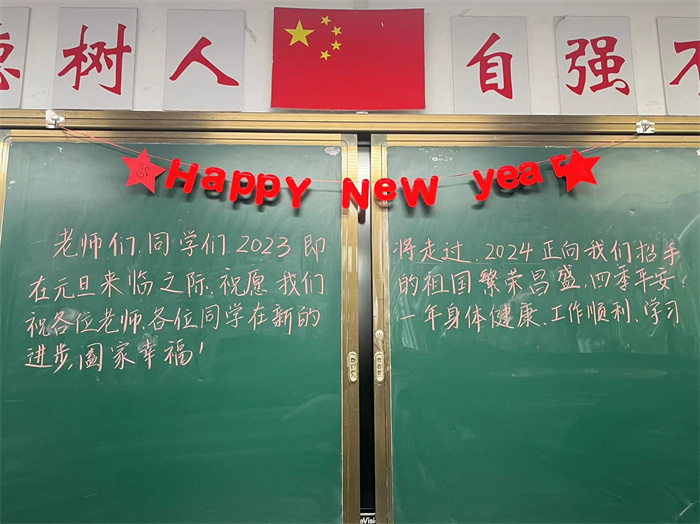 德树人 自强不
Happy New year
老师们、同学们 2023 即将走过、2024 正向我们招手
在元旦来临之际、祝愿我们的祖国繁荣昌盛，四季平安，
祝各位老师、各位同学在新的一年身体健康、工作顺利、学习
进步，阖家幸福！